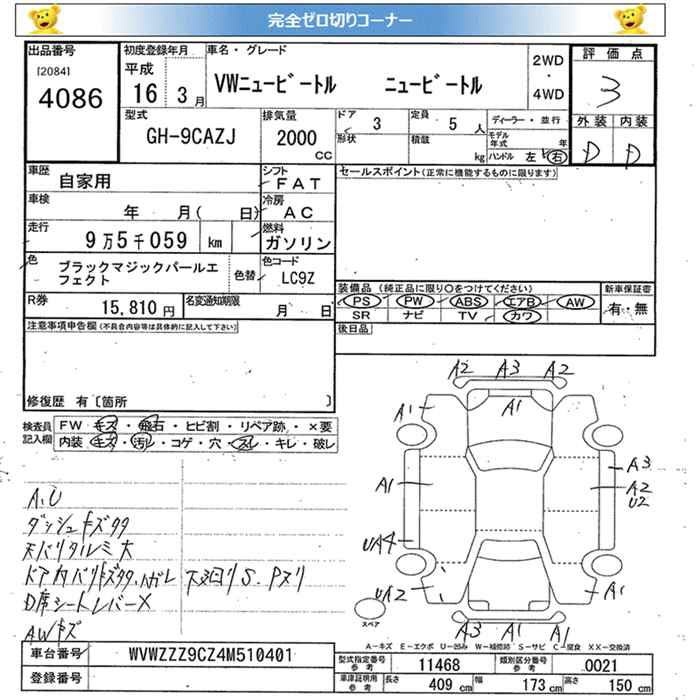 完全ゼロ切りコーナー
出品番号
[2084]
4086
初度登録年月
平成
16 3 月
車名・グレード
VWニュービートル ニュービートル
2WD
・
4WD
評価点
3
外装 内装
D D
型式
GH-9CAZJ
排気量
2000
CC
ドア 3
形状
定員 5 人
積載 kg
ディーラー・並行
モデル年式 年
ハンドル 左 右
車歴
自家用
シフト
FAT
車検
年 月( 日)
冷房
AC
走行
9万5千059 km
燃料
ガソリン
色
ブラックマジックパールエフェクト
色替
色コード
LC9Z
R券
15,810 円
名変通知期限
月 日
セールスポイント(正常に機能するものに限ります)
装備品 (純正品に限り○をつけてください)
PS PW ABS エアB AW
SR ナビ TV カワ
新車保証書
有・無
後日品
注意事項申告欄(不具合内容等は具体的に記入して下さい)
修復歴 有〔箇所 〕
検査員記入欄
FW キズ・飛石・ヒビ割・リペア跡・×要
内装 キズ・汚レ・コゲ・穴・スレ・キレ・破レ
A.U
ダッシュキズタタ
天バリタルミ大
ドア内バリキズタタ、ハガレ 下廻りS.Pスリ
D席シートレバー×
AWキズ
A2 A3 A2
A1 A1
A1
A3
A2
U2
UA4
UA2
A1
A3 A1 A1
スペア
A-キズ E-エクボ U-凹み W-補修跡 S-サビ C-腐食 XX-交換済
車台番号 WVWZZZ9CZ4M510401
登録番号
型式指定番号 参考 11468
類別区分番号 参考 0021
車庫証明用 参考 長さ 409 cm 幅 173 cm 高さ 150 cm